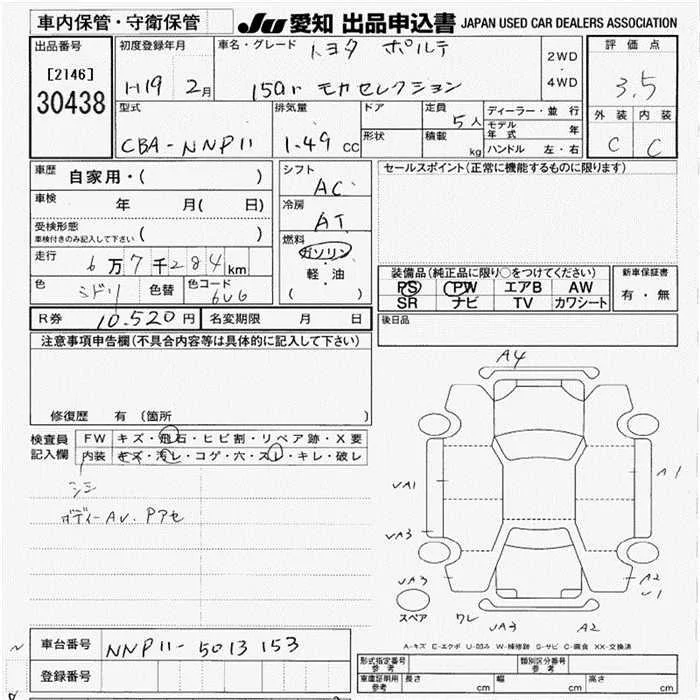 車内保管・守衛保管
JU 愛知 出品申込書 JAPAN USED CAR DEALERS ASSOCIATION
出品番号
[2146]
30438
初度登録年月
H19 2月
車名・グレード トヨタ ポルテ
150r モカセレクション
2WD
・
4WD
評価点
3.5
外装 内装
C C
型式
CBA-NNP11
排気量
1.49 cc
ドア
形状
定員 5人
積載 kg
ディーラー・並行
モデル年式 年
ハンドル 左・右
車歴 自家用・( )
車検 年 月( 日)
受検形態
車検付きのみ記入して下さい ( )
走行 6万7千284km
色 ミドリ 色替 色コード 6V6
シフト
AC
冷房
AT
燃料
ガソリン
・
軽・油
( )
セールスポイント(正常に機能するものに限ります)
装備品(純正品に限り○をつけてください)
PS PW エアB AW
SR ナビ TV カワシート
新車保証書
有・無
後日品
R券 10.520円 名変期限 月 日
注意事項申告欄(不具合内容等は具体的に記入して下さい)
修復歴 有 (箇所 )
検査員
記入欄
FW キズ・飛石・ヒビ割・リペア跡・X要
内装 キズ・汚レ・コゲ・穴・スレ・キレ・破レ
シミ
ボディーAV. Pアセ
A4
UA1
A1
UA3
UA3
A2
U1
スペア
ワレ
UA3
A2
A-キズ E-エクボ U-凹み W-補修跡 S-サビ C-腐食 XX-交換済
車台番号 NNP11-5013153
登録番号
形式指定番号
参考
類別区分番号
参考
車庫証明用
参考
長さ cm 幅 cm 高さ cm